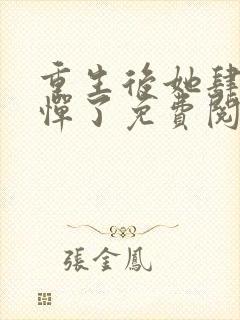 重生後她肆
憚了免費閱
張金鳳